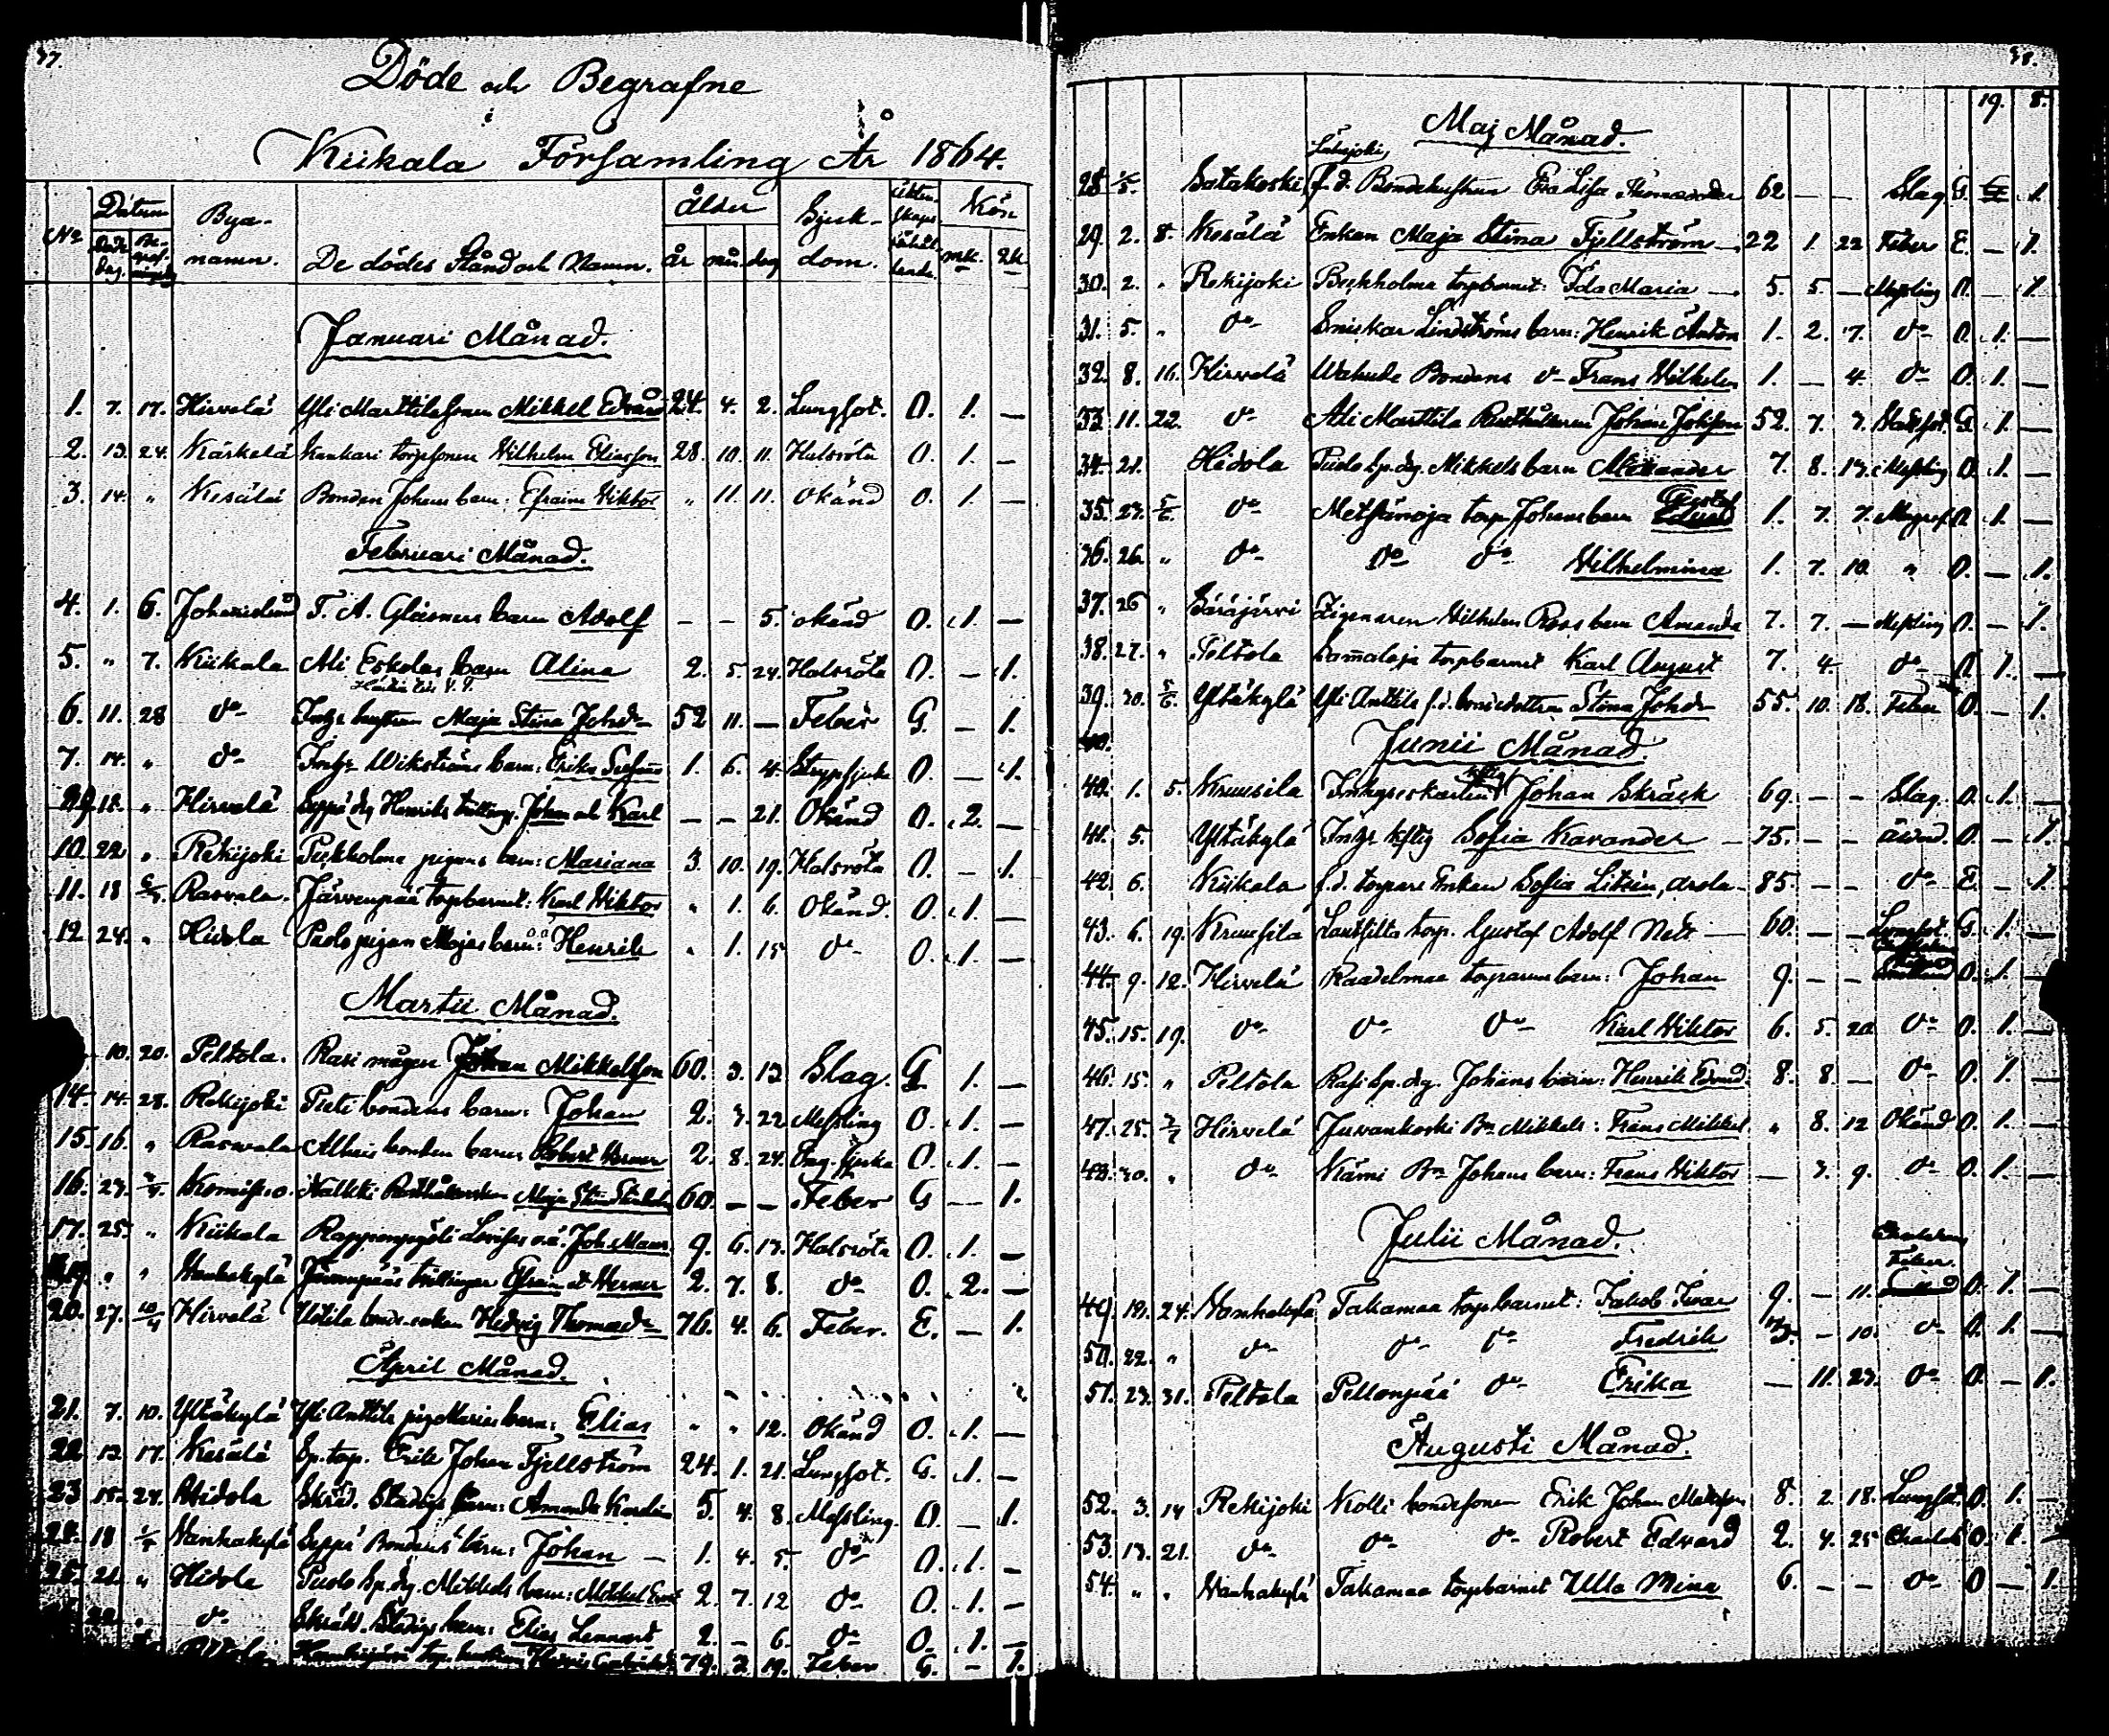 37.
Döde och Begrafne
i
Kiikala Församling År 1864.
No Datum Bya- namn. De dödes Stånd och Namn. ålder år mån dag Sjuk- dom. Kön mk. qk.
Januari Månad.
1. 7. 17. Hirvelä Yli Marttila sonen Mikkel Edvard 24. 4. 2. Lungsot. O. 1. —
2. 13. 24. Kärkelä Kankari torpsonen Wilhelm Eliasson 28. 10. 11. Halsröta O. 1. —
3. 14. " Kesälä Bonden Johans barn: Efraim Viktor " 11. 11. Okänd O. 1. —
Februari Månad.
4. 1. 6. Johanislund T. A. Gläsners barn Adolf — — 5. okänd O. 1. —
5. " 7. Kiikala Ali Eskolas barn Alina 2. 5. 24. Halsröta O. — 1.
6. 11. 28 do Inhys hustrun Maja Stina Johsdr 52 11. — Feber G. — 1.
7. 14. " do Inhys Wikströms barn: Erika 1. 6. 4. Strypsjuka O. — 1.
18. " Hirvelä Seppä drg Henriks tvilling. Johan och Karl — — 21. Okänd O. 2. —
10. 22 " Rekijoki Pirkholma pigans barn: Mariana 3 10. 19. Halsröta O. — 1.
11. 18 Rasvala. Järvenpää torpbarnet: Karl Viktor " 1. 6. Okänd. O. 1. —
12 24. " Hidola Puolo pigan Majas barn: Henrik " 1. 15 do O. 1. —
Martii Månad.
10. 20. Peltola. Rasi mågen Johan Mikkelsson 60. 3. 13 Slag. G 1. —
14. 14 28. Rekijoki Pieti bondens barn: Johan 2. 3. 22 Messling O. 1. —
15. 16. " Rasvala bonden barn Robert Verner 2. 8. 24. Eng. sjuka O. 1. —
16. 23. Maja Stina 60. — — Feber G — 1.
17. 25. " Kiikala 9. 6. 13. Halsröta O. 1. —
" " Vanhakylä Järvenpääs tvillingar Efraim et Verner 2. 7. 8. do O. 2. —
20. 27. 10/4 Hirvelä Uotila bonde-enkan Hedvig Thomasdr 76. 4. 6. Feber. E. — 1.
April Månad.
21. 7. 10. Yltäkylä Yli Anttila pig Marias barn: Elias " " 12. Okänd O. 1. —
22 13. 17. Kesälä Sp. torp. Erik Johan Fjellström 24. 1. 21. Lungsot. G. 1. —
23 15. 24. Hidola Skräd. Stadigs barn: Amanda Karolin 5. 4. 8. Messling. O. — 1.
24. 18 1/5 Vanhakylä Seppä Bondens barn: Johan — 1. 4. 5. do O. 1. —
25. 21. " Hidola Puolo Sp. drg. Mikkels barn: Mikkel 2. 7. 12 do O. 1. —
22. " do Skrädd. Stadigs barn: Elias Lennard 2. — 6. do O. 1. —
79. 2. 19. Feber G. — 1.
38.
19. 8.
Maj Månad.
28 Satakoski f. d. Bondehustrun Eva Lisa Thomasdr 62 — — Slag G. 1.
29. 2. 8. Kesälä Enkan Maja Stina Fjellström 22 1. 22 Feber E. — 1.
30. 2. " Rekijoki Beckholma torpbarnet: Ida Maria — 5. 5. — Messling O. — 1.
31. 5. " do Sniskar Lindströms barn: Henrik Anton 1. 2. 7. do O. 1. —
32. 8. 16. Hirvelä Bondens do Frans Vilhelm 1. — 4. do O. 1. —
33 11. 22. do Ali Marttila Rusthållaren Johan Johsson 52. 7. 7. G. 1. —
34. 21. Hidola Puolo sp. drg. Mikkels barn Alexander 7. 8. 17. Messling O. 1. —
35. 23. 5/6. do Metsänoja torp. Johans barn Gustaf 1. 7. 7. O. 1. —
36. 26. " do do do Vilhelmina 1. 7. 10. " O. — 1.
37. 26 " Säräjärvi Zigenaren Wilhelm Roos barn Amanda 7. 7. — Messling O. — 1.
38. 27. " Peltola torpbarnet Karl August 7. 4. do O. 1. —
39. 30. 5/6. Yltäkylä Yli Anttila f. d. bondedottren Stina Johdr 55. 10. 18. Feber O. — 1.
Junii Månad.
40. 1. 5. Kruusila Johan Skräck 69. — — Slag. O. 1. —
41. 5. Yltäkylä Inhys hjtig Sofia Kavander — 75. — — O. — 1.
42. 6. Kiikala f. d. torpare Enkan Sofia 85. — — do E. — 1.
43. 6. 19. Kruusila torp. Gustaf Adolf — 60. — — Lungsot G. 1. —
44. 9. 12. Hirvelä Raadelmaa torparens barn: Johan 9. — — O. 1. —
45. 15. 19. do do do Karl Viktor 6. 5. 20. do O. 1. —
46. 15. " Peltola Rasi Sp. drg. Johans barn: Henrik 8. 8. — do O. 1. —
47. 25. 3/7 Hirvelä Juvankoski Bn Mikkels: Frans Mikkel. " 8. 12 Okänd O. 1. —
48. 30. " do Närvi Bn Johans barn: Frans Viktor — 3. 9. do O. 1. —
Julii Månad.
Feber.
49. 19. 24. Vanhakylä Takamaa torpbarnet: Jakob Ivar 9. — 11. O. 1. —
50. 22. " do do do Fredrik — 10. do O. 1. —
51. 23. 31. Peltola Peltonpää do Erika — 11. 23. do O. — 1.
Augusti Månad.
52. 3. 14 Rekijoki Kolli bondesonen Erik Johan 8. 2. 18. Lungsot. O. 1. —
53. 13. 21. do do do Robert Edvard 2. 4. 25 O. 1. —
54. " " Vanhakylä Takamaa torpbarnet Ulla Mina 6. — — do O — 1.